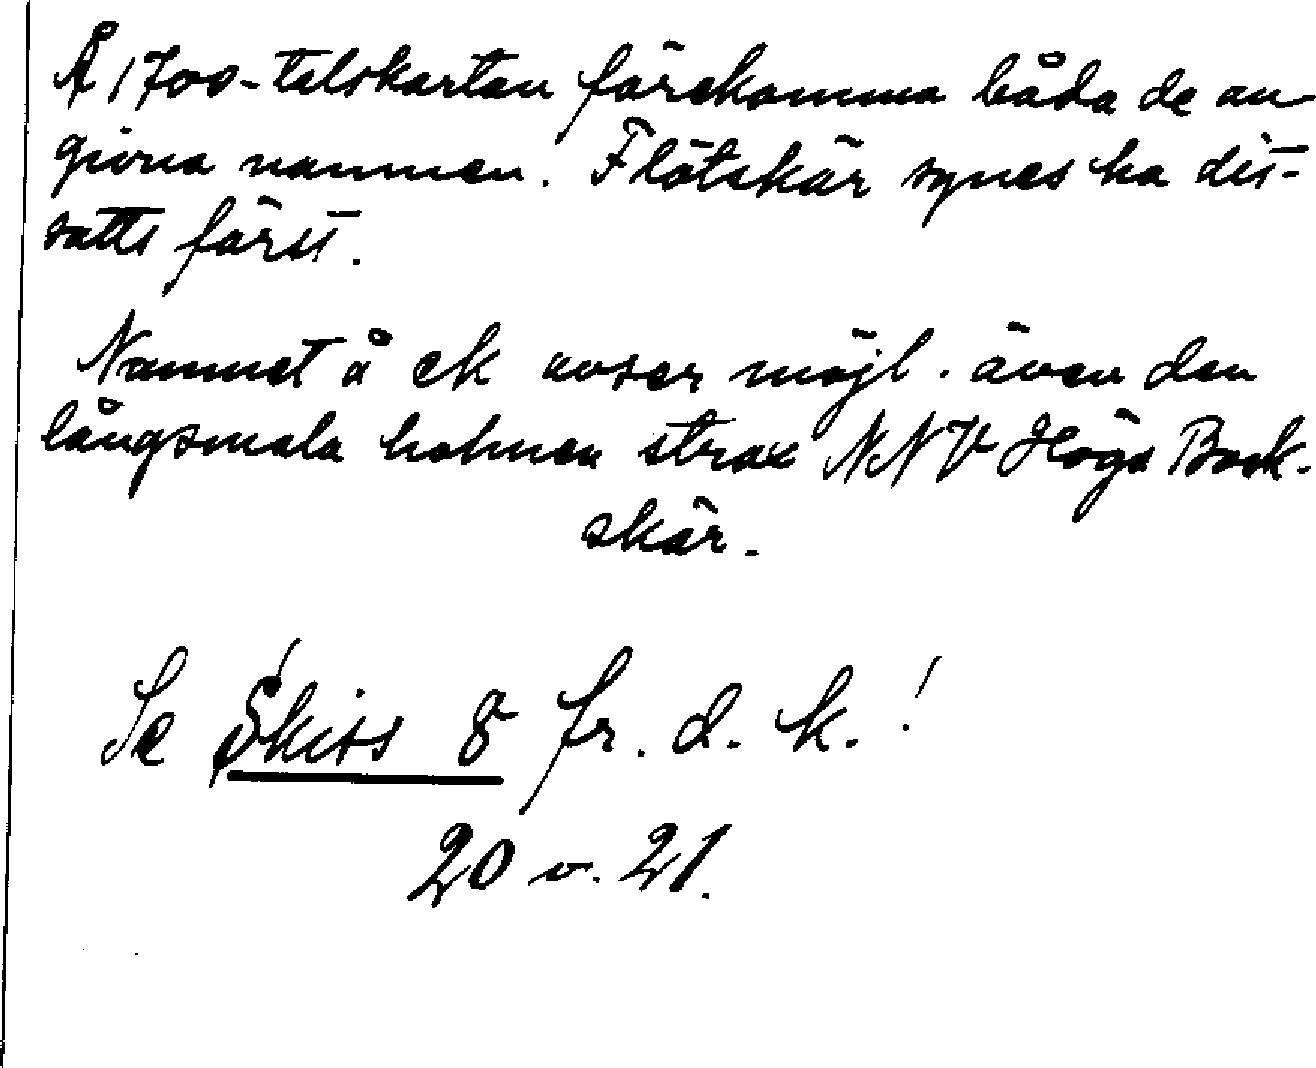 Å 1700-talskartan förekomma båda de an-
givna namnen. Flötskär synes ha dit-
satts först.
Namnet å ek avser möjl. även den
långsmala holmen strax NNV Höga Bock-
skär.
Se Skiss 8 fr. d. k.!
20 v. 21.